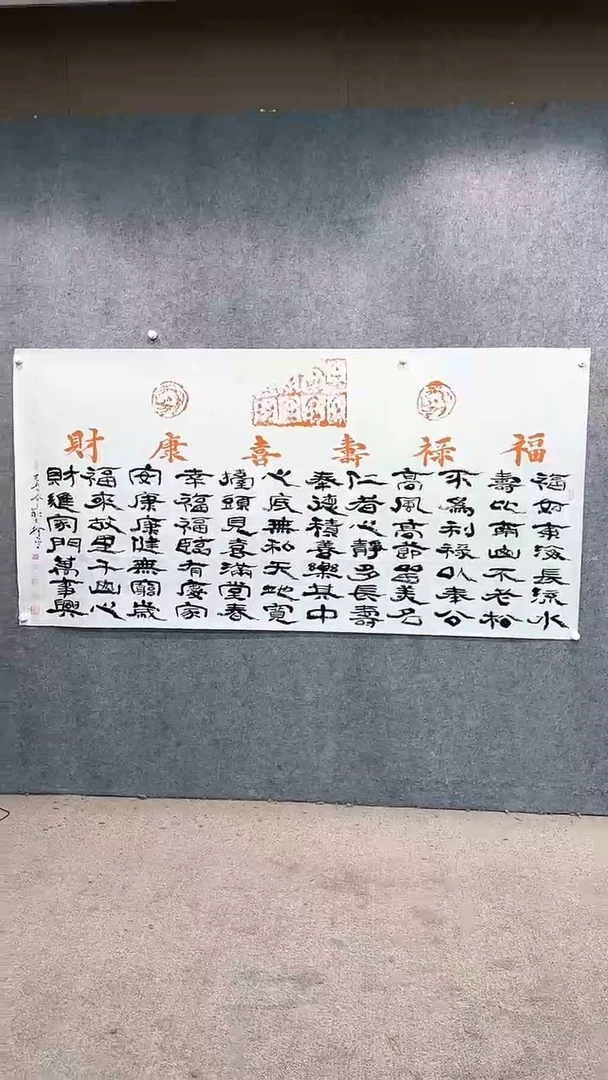 福禄壽喜康財
福如東海長流水
壽比南山不老松
不為利禄以奉公
高風高節留美名
仁者心静多長壽
奉德積善樂其中
心底無私天地寬
擡頭見喜滿堂春
幸福福臨有慶家
安康康健無窮歲
福來故里千山心
財進家門萬事興